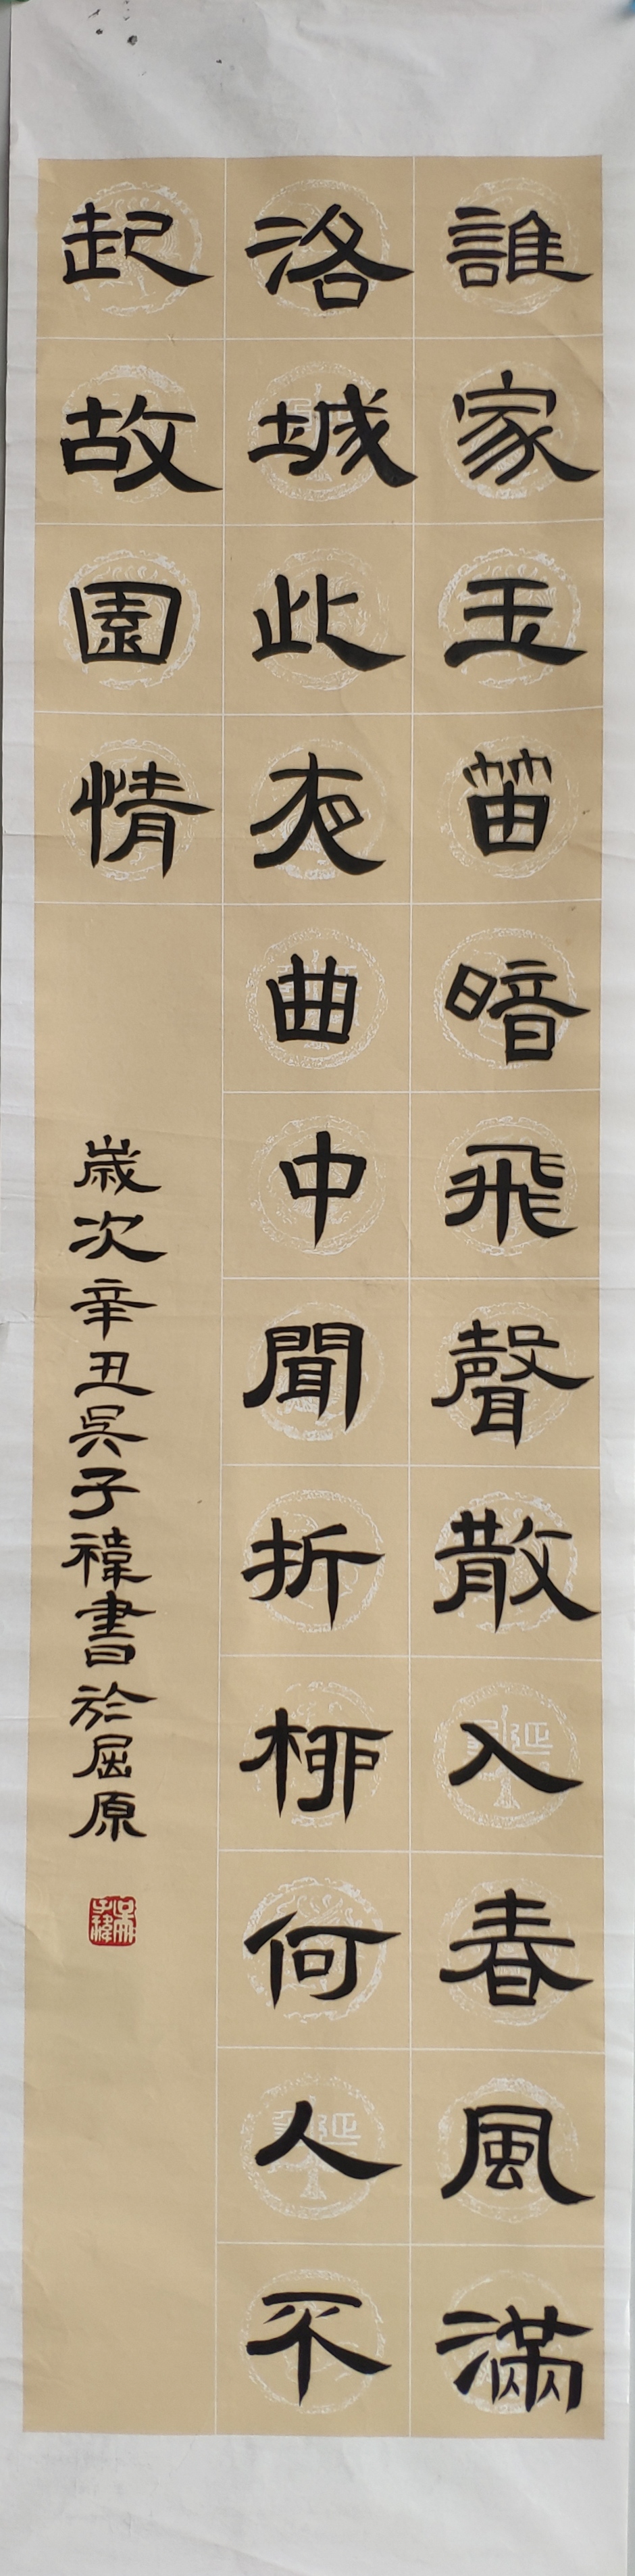 誰家玉笛暗飛聲散入春風滿
洛城此夜曲中聞折柳何人不
起故園情
歲次辛丑吳子禕書於屈原
吳子禕